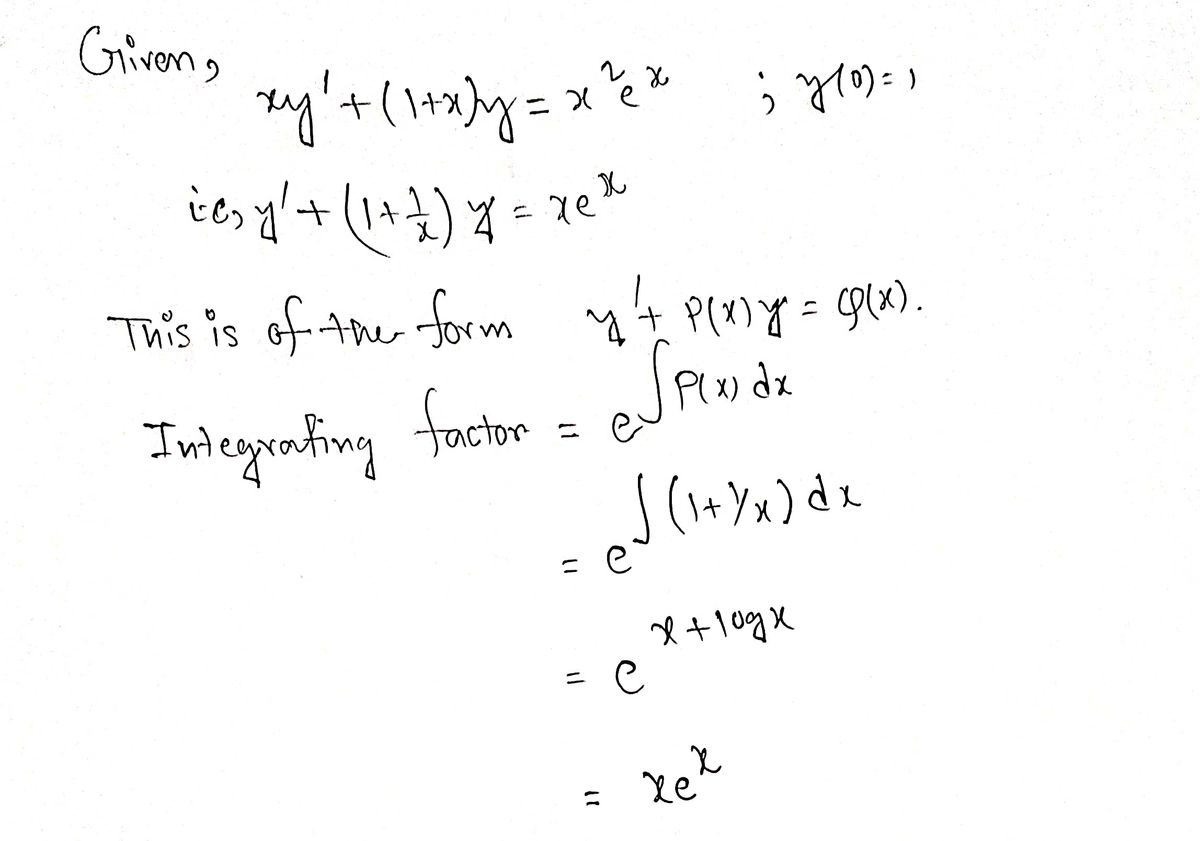 Given,
xy' + (1+x)y = x²eˣ ; y(0)=1
i.e, y' + (1+1/x) y = xeˣ
This is of the form y' + P(x)y = Q(x).
Integrating factor = e^∫P(x) dx
= e^∫(1+1/x) dx
= e^x+logx
= xeˣ